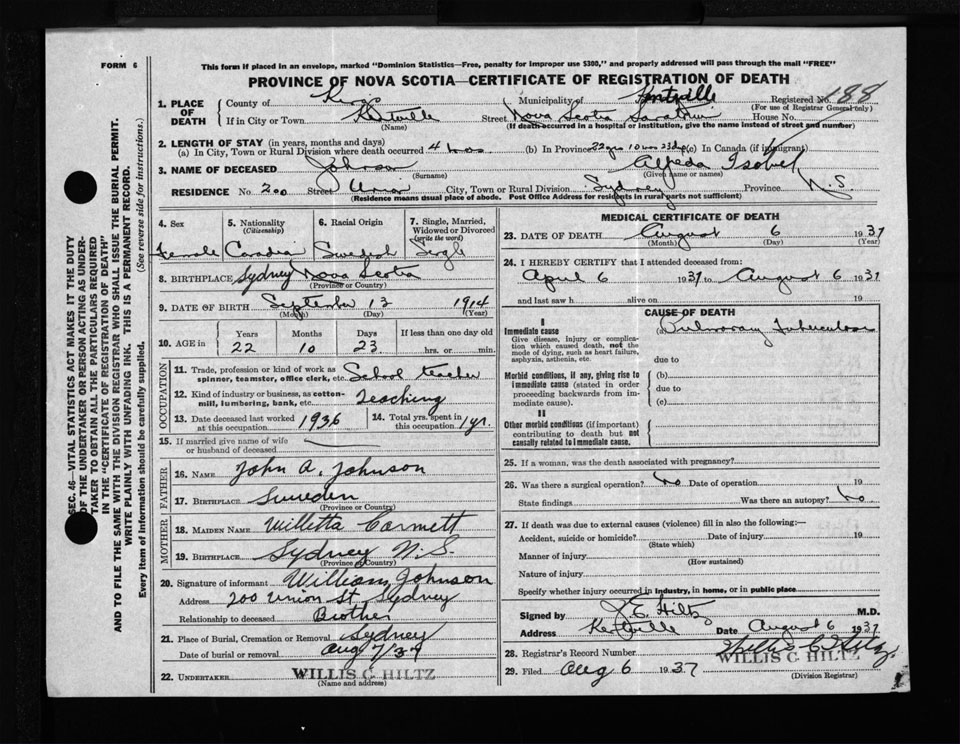 FORM 6
This form if placed in an envelope, marked "Dominion Statistics—Free, penalty for improper use $300," and properly addressed will pass through the mail "FREE"
PROVINCE OF NOVA SCOTIA—CERTIFICATE OF REGISTRATION OF DEATH
1. PLACE OF DEATH
County of Kings Municipality of Kentville Registered No. 188
(For use of Registrar General only)
If in City or Town Kentville Street Nova Scotia House No.
(Name) (If death occurred in a hospital or institution, give the name instead of street and number)
2. LENGTH OF STAY (in years, months and days)
(a) In City, Town or Rural Division where death occurred 4 mos (b) In Province 22 yrs 10 mos 23 dys (c) In Canada (if immigrant)
3. NAME OF DECEASED Johnson Alfreda Isobel
(Surname) (Given name or names)
RESIDENCE No. 200 Street Union City, Town or Rural Division Sydney Province N.S.
(Residence means usual place of abode. Post Office Address for residents in rural parts not sufficient)
4. Sex
5. Nationality (Citizenship)
6. Racial Origin
7. Single, Married, Widowed or Divorced (write the word)
Female Canadian Swedish Single
8. BIRTHPLACE Sydney Nova Scotia
(Province or Country)
9. DATE OF BIRTH September 13 1914
(Month) (Day) (Year)
10. AGE in
Years Months Days If less than one day old
22 10 23 hrs. or min.
OCCUPATION
11. Trade, profession or kind of work as spinner, teamster, office clerk, etc. School teacher
12. Kind of industry or business, as cotton-mill, lumbering, bank, etc. Teaching
13. Date deceased last worked at this occupation 1936
14. Total yrs. spent in this occupation 1 yr.
15. If married give name of wife or husband of deceased
FATHER
16. NAME John A. Johnson
17. BIRTHPLACE Sweden
(Province or Country)
MOTHER
18. MAIDEN NAME Willetta
19. BIRTHPLACE Sydney N.S.
(Province or Country)
20. Signature of informant William Johnson
Address 200 Union St. Sydney
Relationship to deceased Brother
21. Place of Burial, Cremation or Removal Sydney
Date of burial or removal Aug 7/37
22. UNDERTAKER WILLIS C HILTZ
(Name and address)
MEDICAL CERTIFICATE OF DEATH
23. DATE OF DEATH August 6 1937
(Month) (Day) (Year)
24. I HEREBY CERTIFY that I attended deceased from:
April 6 1937 to August 6 1937
and last saw h alive on 19
CAUSE OF DEATH
I
Immediate cause (a) Pulmonary Tuberculosis
Give disease, injury or complication which caused death, not the mode of dying, such as heart failure, asphyxia, asthenia, etc.
due to
Morbid conditions, if any, giving rise to immediate cause (stated in order proceeding backwards from immediate cause).
(b)
due to
(c)
II
Other morbid conditions (if important) contributing to death but not causally related to immediate cause.
25. If a woman, was the death associated with pregnancy?
26. Was there a surgical operation? No Date of operation 19
State findings Was there an autopsy? No
27. If death was due to external causes (violence) fill in also the following:—
Accident, suicide or homicide? Date of injury 19
(State which)
Manner of injury
(How sustained)
Nature of injury
Specify whether injury occurred in industry, in home, or in public place
Signed by J. E. Hiltz M.D.
Address Kentville Date August 6 1937
28. Registrar's Record Number Willis C Hiltz
WILLIS C HILTZ
29. Filed Aug 6 1937 (Division Registrar)
SEC. 46—VITAL STATISTICS ACT MAKES IT THE DUTY
OF THE UNDERTAKER OR PERSON ACTING AS UNDER-
TAKER TO OBTAIN ALL THE PARTICULARS REQUIRED
IN THE "CERTIFICATE OF REGISTRATION OF DEATH"
AND TO FILE THE SAME WITH THE DIVISION REGISTRAR WHO SHALL ISSUE THE BURIAL PERMIT.
WRITE PLAINLY WITH UNFADING INK. THIS IS A PERMANENT RECORD.
Every item of information should be carefully supplied. (See reverse side for instructions.)